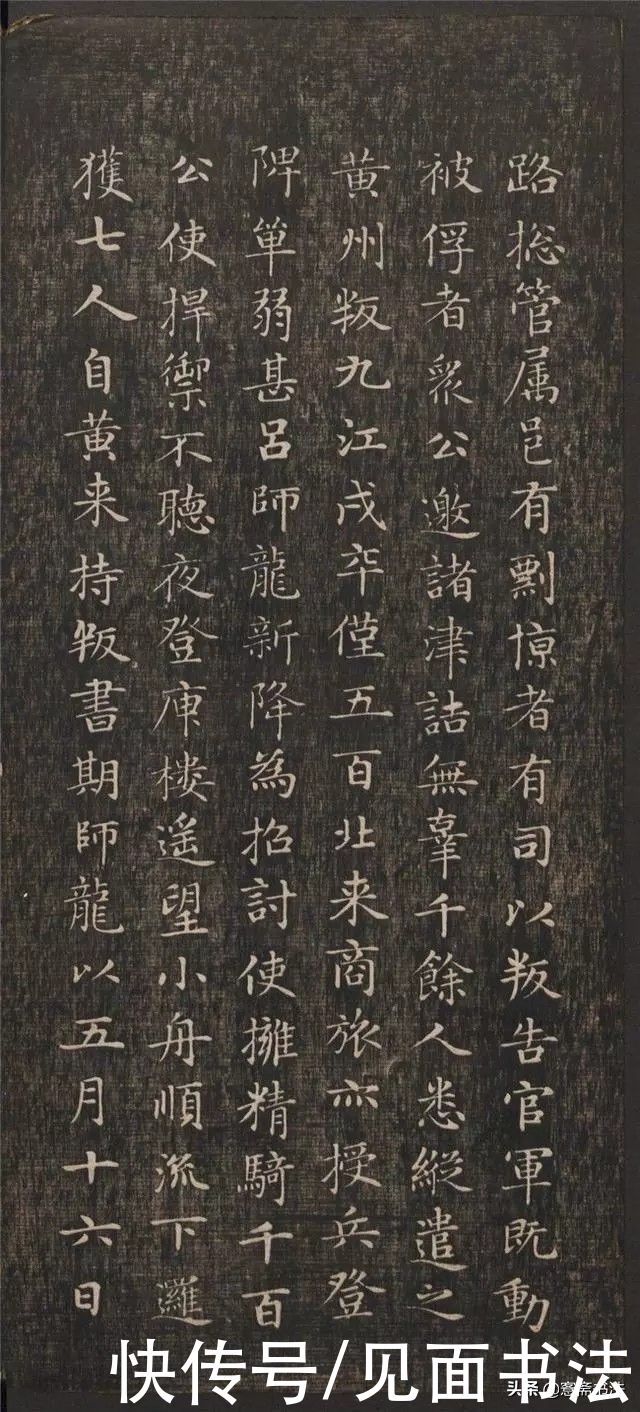 路揔管属邑有剽惊者有司以叛告官軍既動
被俘者衆公邀諸津詰無辜千餘人悉縱遣之
黄州叛九江戍卒僅五百北来商旅亦授兵登
陴單弱甚吕師龍新降為招討使擁精騎千百
公使捍禦不聽夜登庾樓遥望小舟順流下邏
獲七人自黄来持叛書期師龍以五月十六日
快传号/见面书法
头条@寋斋书法